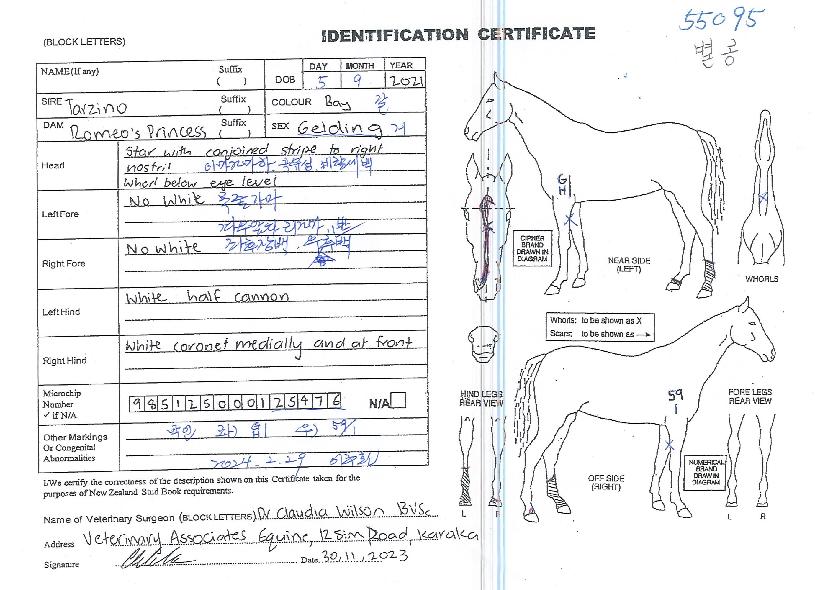 55095
IDENTIFICATION CERTIFICATE
(BLOCK LETTERS)
별 콩
NAME (If any) Suffix ( ) DOB DAY 5 MONTH 9 YEAR 2021
SIRE Tarzino Suffix ( ) COLOUR Bay 갈
DAM Romeo's Princess Suffix ( ) SEX Gelding 거
Head Star with conjoined stripe to right
nostril
Whorl below eye level
Left Fore No White
Right Fore No White
Left Hind White half cannon
Right Hind White coronet medially and at front
Microchip
Number
✓ if N/A
985125000125476 N/A
Other Markings
Or Congenital
Abnormalities
59/1
2024.2.29
I/We certify the correctness of the description shown on this Certificate taken for the
purposes of New Zealand Stud Book requirements.
Name of Veterinary Surgeon (BLOCK LETTERS) Dr Claudia Wilson BVSc
Address Veterinary Associates Equine, Road, Karaka
Signature Date 30.11.2023
G
H
CIPHER
BRAND
DRAWN IN
DIAGRAM
NEAR SIDE
(LEFT)
WHORLS
Whorls: to be shown as X
Scars: to be shown as →
HIND LEGS
REAR VIEW
59
1
FORE LEGS
REAR VIEW
NUMERICAL
BRAND
DRAWN IN
DIAGRAM
OFF SIDE
(RIGHT)
L R
L R